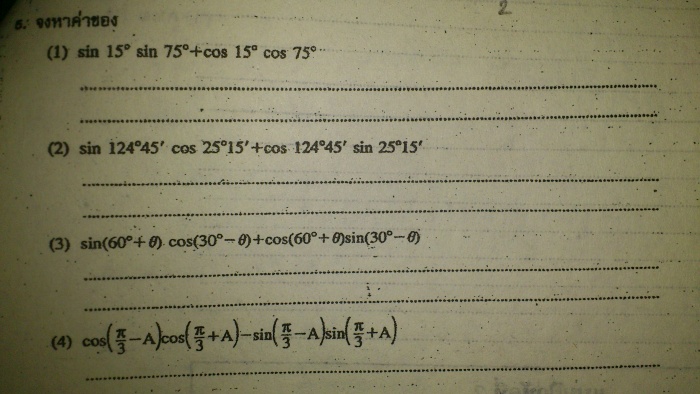 2
8. จงหาค่าของ
(1) sin 15° sin 75°+cos 15° cos 75°
(2) sin 124°45′ cos 25°15′+cos 124°45′ sin 25°15′
(3) sin(60°+θ) cos(30°−θ)+cos(60°+θ)sin(30°−θ)
(4) cos(π/3−A)cos(π/3+A)−sin(π/3−A)sin(π/3+A)